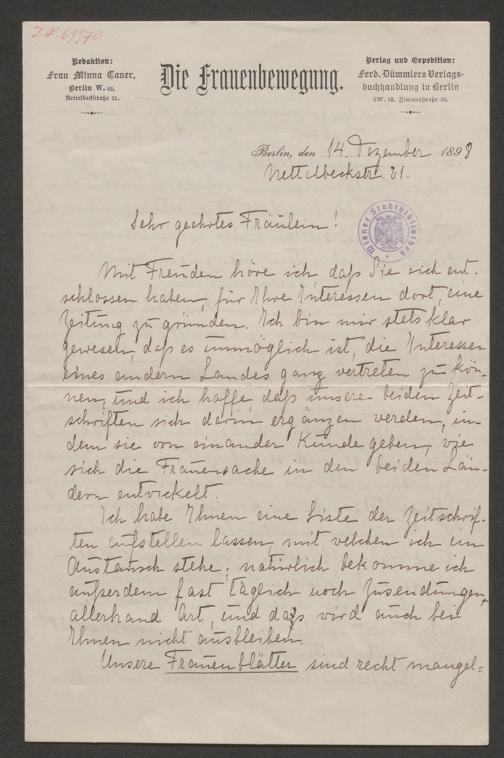 I.N. 69970
Redaktion:
Frau Minna Cauer,
Berlin W. 62,
Nettelbeckstraße 21.
Die Frauenbewegung.
Verlag und Expedition:
Ferd. Dümmlers Verlags-
buchhandlung in Berlin
SW. 12, Zimmerstraße 94.
Berlin, den 14. Dezember 1898
Nettelbeckstr. 21.
Wiener Stadtbibliothek
Sehr geehrtes Fräulein!
Mit Freuden höre ich daß Sie sich ent-
schlossen haben, für Ihre Interessen dort, eine
Zeitung zu gründen. Ich bin mir stets klar
gewesen, daß es unmöglich ist, die Interessen
eines andern Landes ganz vertreten zu kön-
nen, und ich hoffe daß unsere beiden Zeit-
schriften sich darin ergänzen werden, in-
dem sie von einander Kunde geben, wie
sich die Frauensache in den beiden Län-
dern entwickelt.
Ich habe Ihnen eine Liste der Zeitschrif-
ten aufstellen lassen, mit welchen ich im
Austausch stehe; natürlich bekomme ich
außerdem fast täglich noch Zusendungen
allerhand Art, und daß wird auch bei
Ihnen nicht ausbleiben.
Unsere Frauenblätter sind recht mangel=